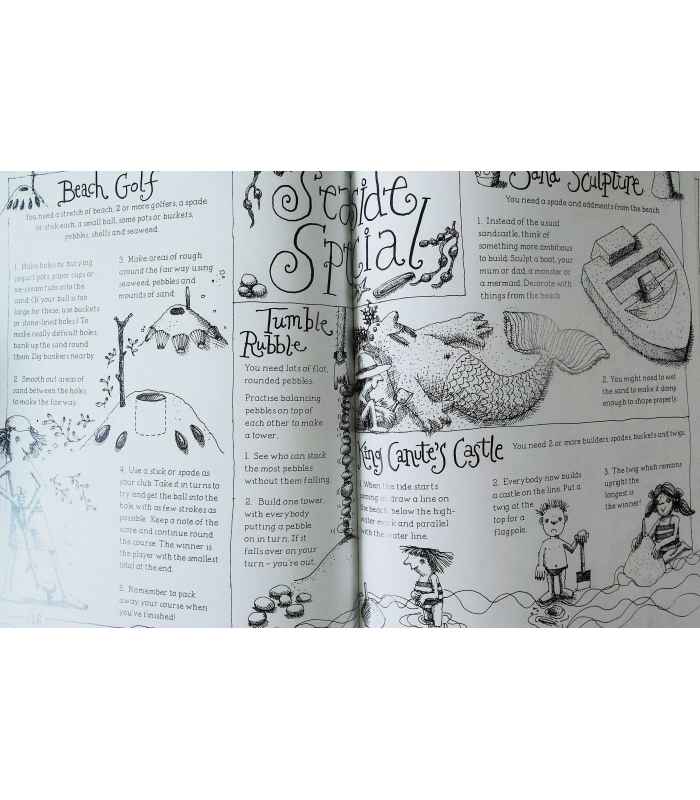 Beach Golf
You need a stretch of beach, 2 or more golfers, a spade
or stick each, a small ball, some pots or buckets,
pebbles, shells and seaweed.
1. Make holes by burying
yogurt pots, paper cups or
ice-cream tubs into the
sand. (If your ball is too
large for these, use buckets
or stone-lined holes.) To
make really difficult holes,
bank up the sand round
them. Dig bunkers nearby.
2. Smooth out areas of
sand between the holes,
to make the fairway.
3. Make areas of rough
around the fairway using
seaweed, pebbles and
mounds of sand.
4. Use a stick or spade as
your club. Take it in turns to
try and get the ball into the
hole with as few strokes as
possible. Keep a note of the
score and continue round
the course. The winner is
the player with the smallest
total at the end.
5. Remember to pack
away your course when
you've finished!
Seaside
Special
Tumble
Rubble
You need lots of flat,
rounded pebbles.
Practise balancing
pebbles on top of
each other to make
a tower.
1. See who can stack
the most pebbles
without them falling.
2. Build one tower,
with everybody
putting a pebble
on in turn. If it
falls over on your
turn – you're out.
Sand Sculpture
You need a spade and oddments from the beach.
1. Instead of the usual
sandcastle, think of
something more ambitious
to build. Sculpt a boat, your
mum or dad, a monster or
a mermaid. Decorate with
things from the beach.
2. You might need to wet
the sand to make it damp
enough to shape properly.
King Canute's Castle
You need 2 or more builders, spades, buckets and twigs.
1. When the tide starts
coming in draw a line on
the beach, below the high-
water mark and parallel
with the water line.
2. Everybody now builds
a castle on the line. Put a
twig at the
top for a
flagpole.
3. The twig which remains
upright the
longest is
the winner!